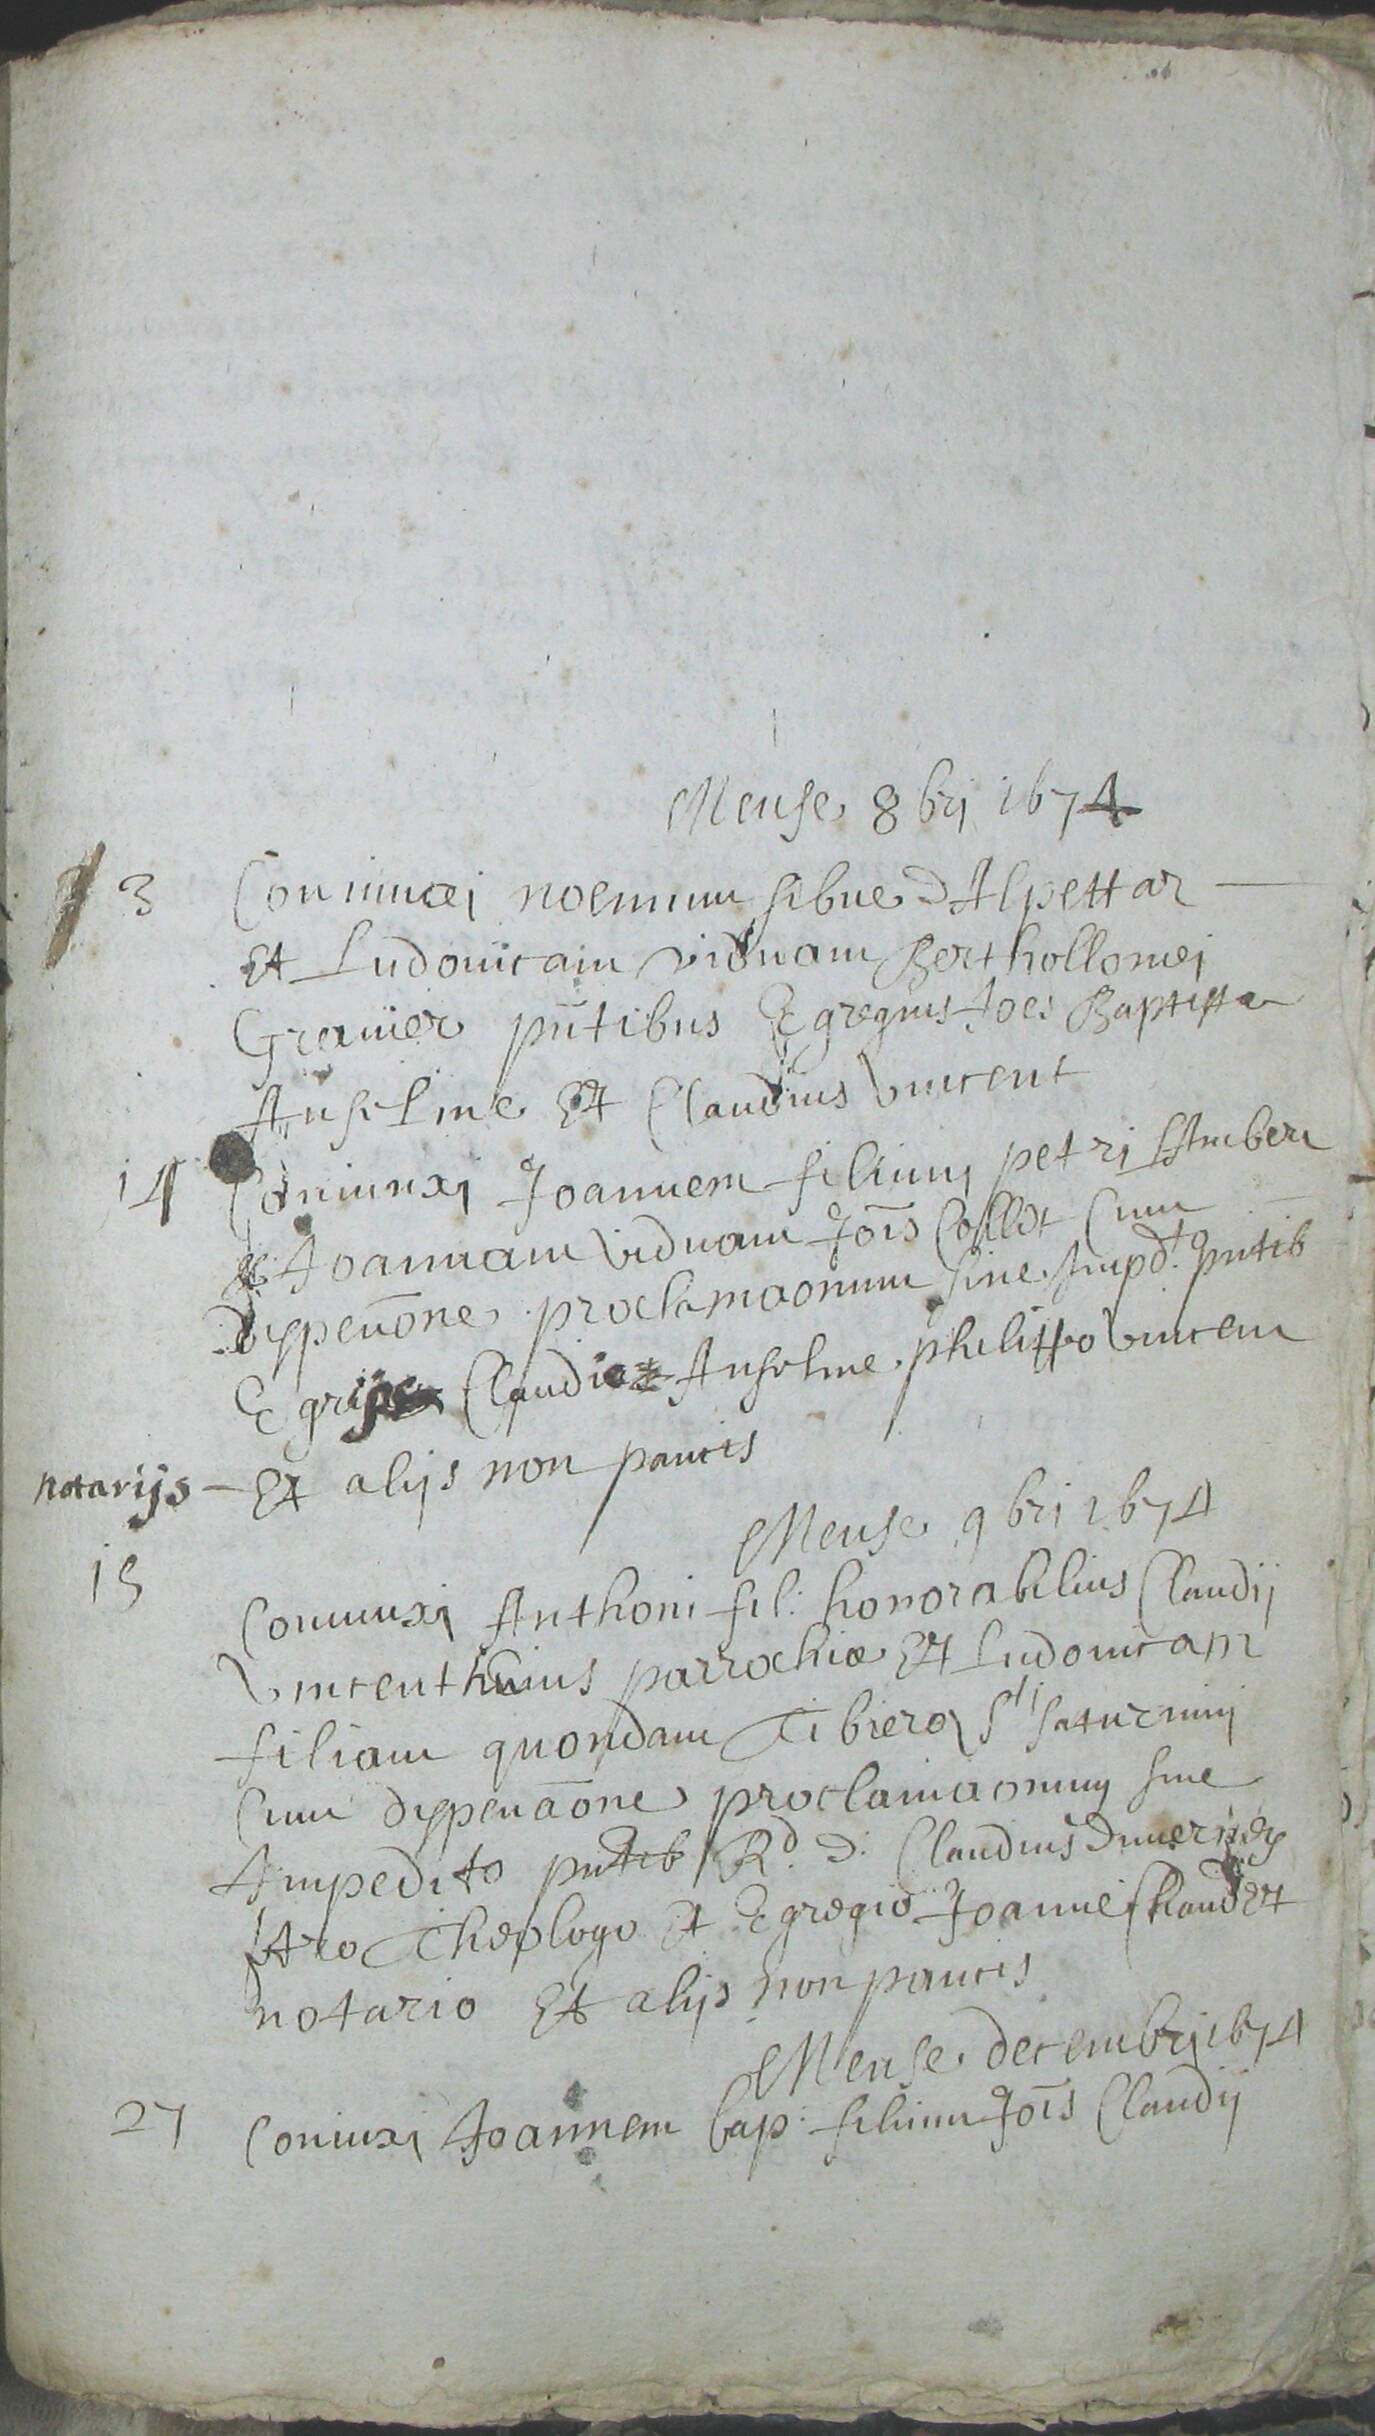 Mense 8bri 1674
3 Coniunxi noemum sibue dAlpettar
Et Ludouicam viduam Berthollomei
Grauier pūtibus Egregius Joes Baptista
Anselme Et Claudius Vincent
14 Coniunxi Joannem filium petri Humbert
& Joannam viduam Jois Collet Cum
dyspenōne proclamaonum sine Impdt. pntib
Egrijs Claudio Anselme philippo Vincent
notarijs - Et alijs non paucis
Mense 9bri 1674
15
Coniunxi Anthoni fil: honorabilius Claudij
Vincent huius parrochiæ Et Ludouicam
filiam quondam Tibiero Sti Saturnini
Cum dyspenāone proclamaonum sine
Impedito pntib Rd. D. Claudius Duuerney
ptro Theologo Et Egregio Joanne Claudet
notario Et alijs non paucis
Mense decembri 1674
27 Coniuxi Joannem bap: filium Jois Claudij